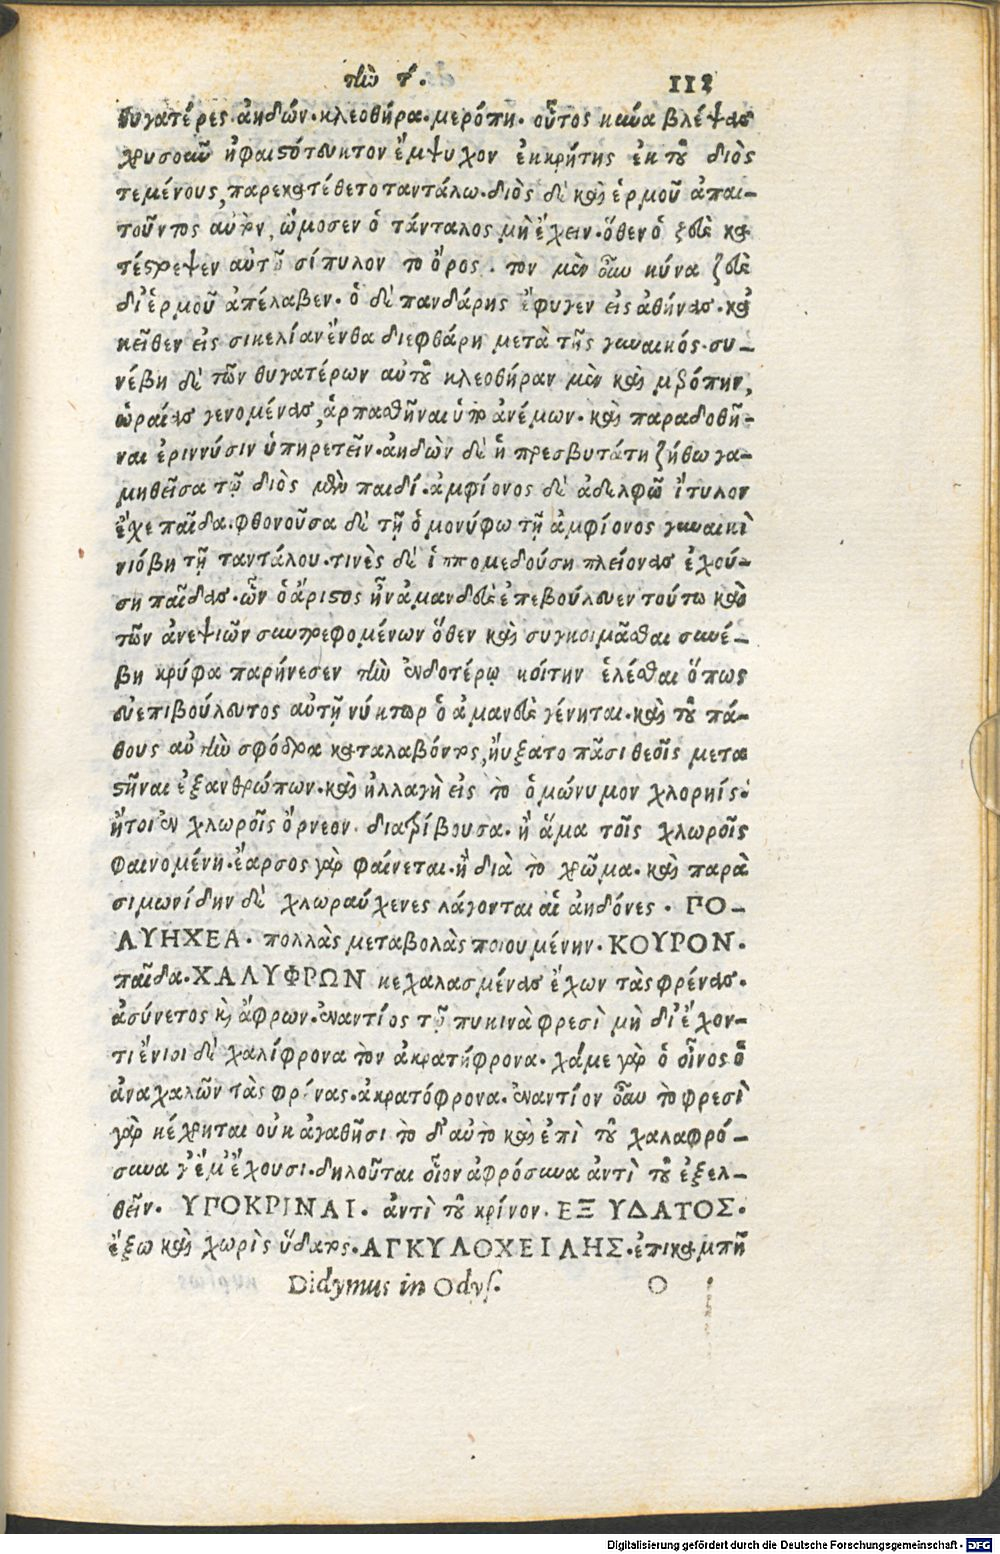 τὴν τ. 112
θυγατέρες ἀηδών· κλεοθήρα· μερόπη· οὗτος κύνα βλέψας
χρυσοῦν ἡφαιστότευκτον ἔμψυχον ἐκκρήτης ἐκ τοῦ διὸς
τεμένους, παρεκατέθετο ταντάλω· διὸς δὲ καὶ ἑρμοῦ ἀπαι-
τοῦντος αὐτὸν, ὤμοσεν ὁ τάνταλος μὴ ἔχειν· ὅθεν ὁ ζεὺς κα
τέστρεψεν αὐτῷ σίπυλον τὸ ὄρος· τον μὲν οὖν κύνα ζεὺς
δι' ἑρμοῦ ἀπέλαβεν· ὁ δὲ πανδάρης ἔφυγεν εἰς ἀθήνας· κἀ
κεῖθεν εἰς σικελίαν ἔνθα διεφθάρη μετὰ τῆς γυναικός· συ-
νέβη δὲ τῶν θυγατέρων αὐτοῦ κλεοθήραν μὲν καὶ μερόπην,
ὡραίας γενομένας, ἁρπαθῆναι ὑπὸ ἀνέμων· καὶ παραδοθῆ-
ναι ἐριννύσιν ὑπηρετεῖν· ἀηδὼν δὲ ἡ πρεσβυτάτη ζήθω γα-
μηθεῖσα τῷ διὸς μὲν παιδί· ἀμφίονος δὲ ἀδελφῶ ἴτυλον
ἔχε παῖδα· φθονοῦσα δὲ τῇ ὁμονύφω τῇ ἀμφίονος γυναικὶ
νιόβη τῇ ταντάλου· τινὲς δὲ ἱππομεδούση πλείονας ἐχού-
ση παῖδας· ὧν ὁ ἄριστος ἦν ἀμανδεὺς ἐπεβούλευεν τούτω καὶ
τῶν ἀνεψιῶν συντρεφομένων ὅθεν καὶ συγκοιμᾶσθαι συνέ-
βη κρύφα παρήνεσεν τὴν ἐνδοτέρῳ κοίτην ἑλέσθαι ὅπως
εὐεπιβούλευτος αὐτῇ νύκτωρ ὁ ἀμανδεὺς γένηται· καὶ τοῦ πά-
θους αὐτὴν σφόδρα καταλαβόντος, ηὔξατο πᾶσι θεοῖς μετα
στῆναι ἐξ ανθρώπων· καὶ ἠλλαγὴ εἰς τὸ ὁμώνυμον χλορηίς·
ἤτοι ἐν χλωροῖς ὄρνεον διατρίβουσα· ἢ ἅμα τοῖς χλωροῖς
φαινομένη· ἔαρσος γὰρ φαίνεται· ἢ διὰ τὸ χρῶμα· καὶ παρὰ
σιμωνίδην δὲ χλωραύχενες λάγονται αἱ ἀηδόνες· ΠΟ-
ΛΥΗΧΕΑ· πολλὰς μεταβολὰς ποιουμένην· ΚΟΥΡΟΝ·
παῖδα· ΧΑΛΥΦΡΩΝ κεχαλασμένας ἔχων τὰς φρένας·
ἀσύνετος κὶ ἄφρων· ἐναντίος τῷ πυκινὰ φρεσὶ μὴ δι' ἔχον-
τι ἔνιοι δὲ χαλίφρονα τὸν ἀκρατήφρονα· χάμε γὰρ ὁ οἶνος ὁ
ἀναχαλῶν τὰς φρένας· ἀκρατόφρονα· ἐναντίον οὖν τὸ φρεσὶ
γὰρ κέχρηται οὐκ ἀγαθῆσι τὸ δ' αὐτὸ καὶ ἐπὶ τοῦ χαλαφρό-
συνα γέ μ' ἔχουσι· δηλοῦται οἷον ἀφρόσυνα ἀντὶ τοῦ ἐξελ-
θεῖν· ΥΠΟΚΡΙΝΑΙ· ἀντὶ τοῦ κρίνον· ΕΞ ΥΔΑΤΟΣ·
ἔξω καὶ χωρὶς ὕδατος· ΑΓΚΥΛΟΧΕΙΛΗΣ· ἐπικαμπῆ
Didymus in Odys. O
Digitalisierung gefördert durch die Deutsche Forschungsgemeinschaft - DFG